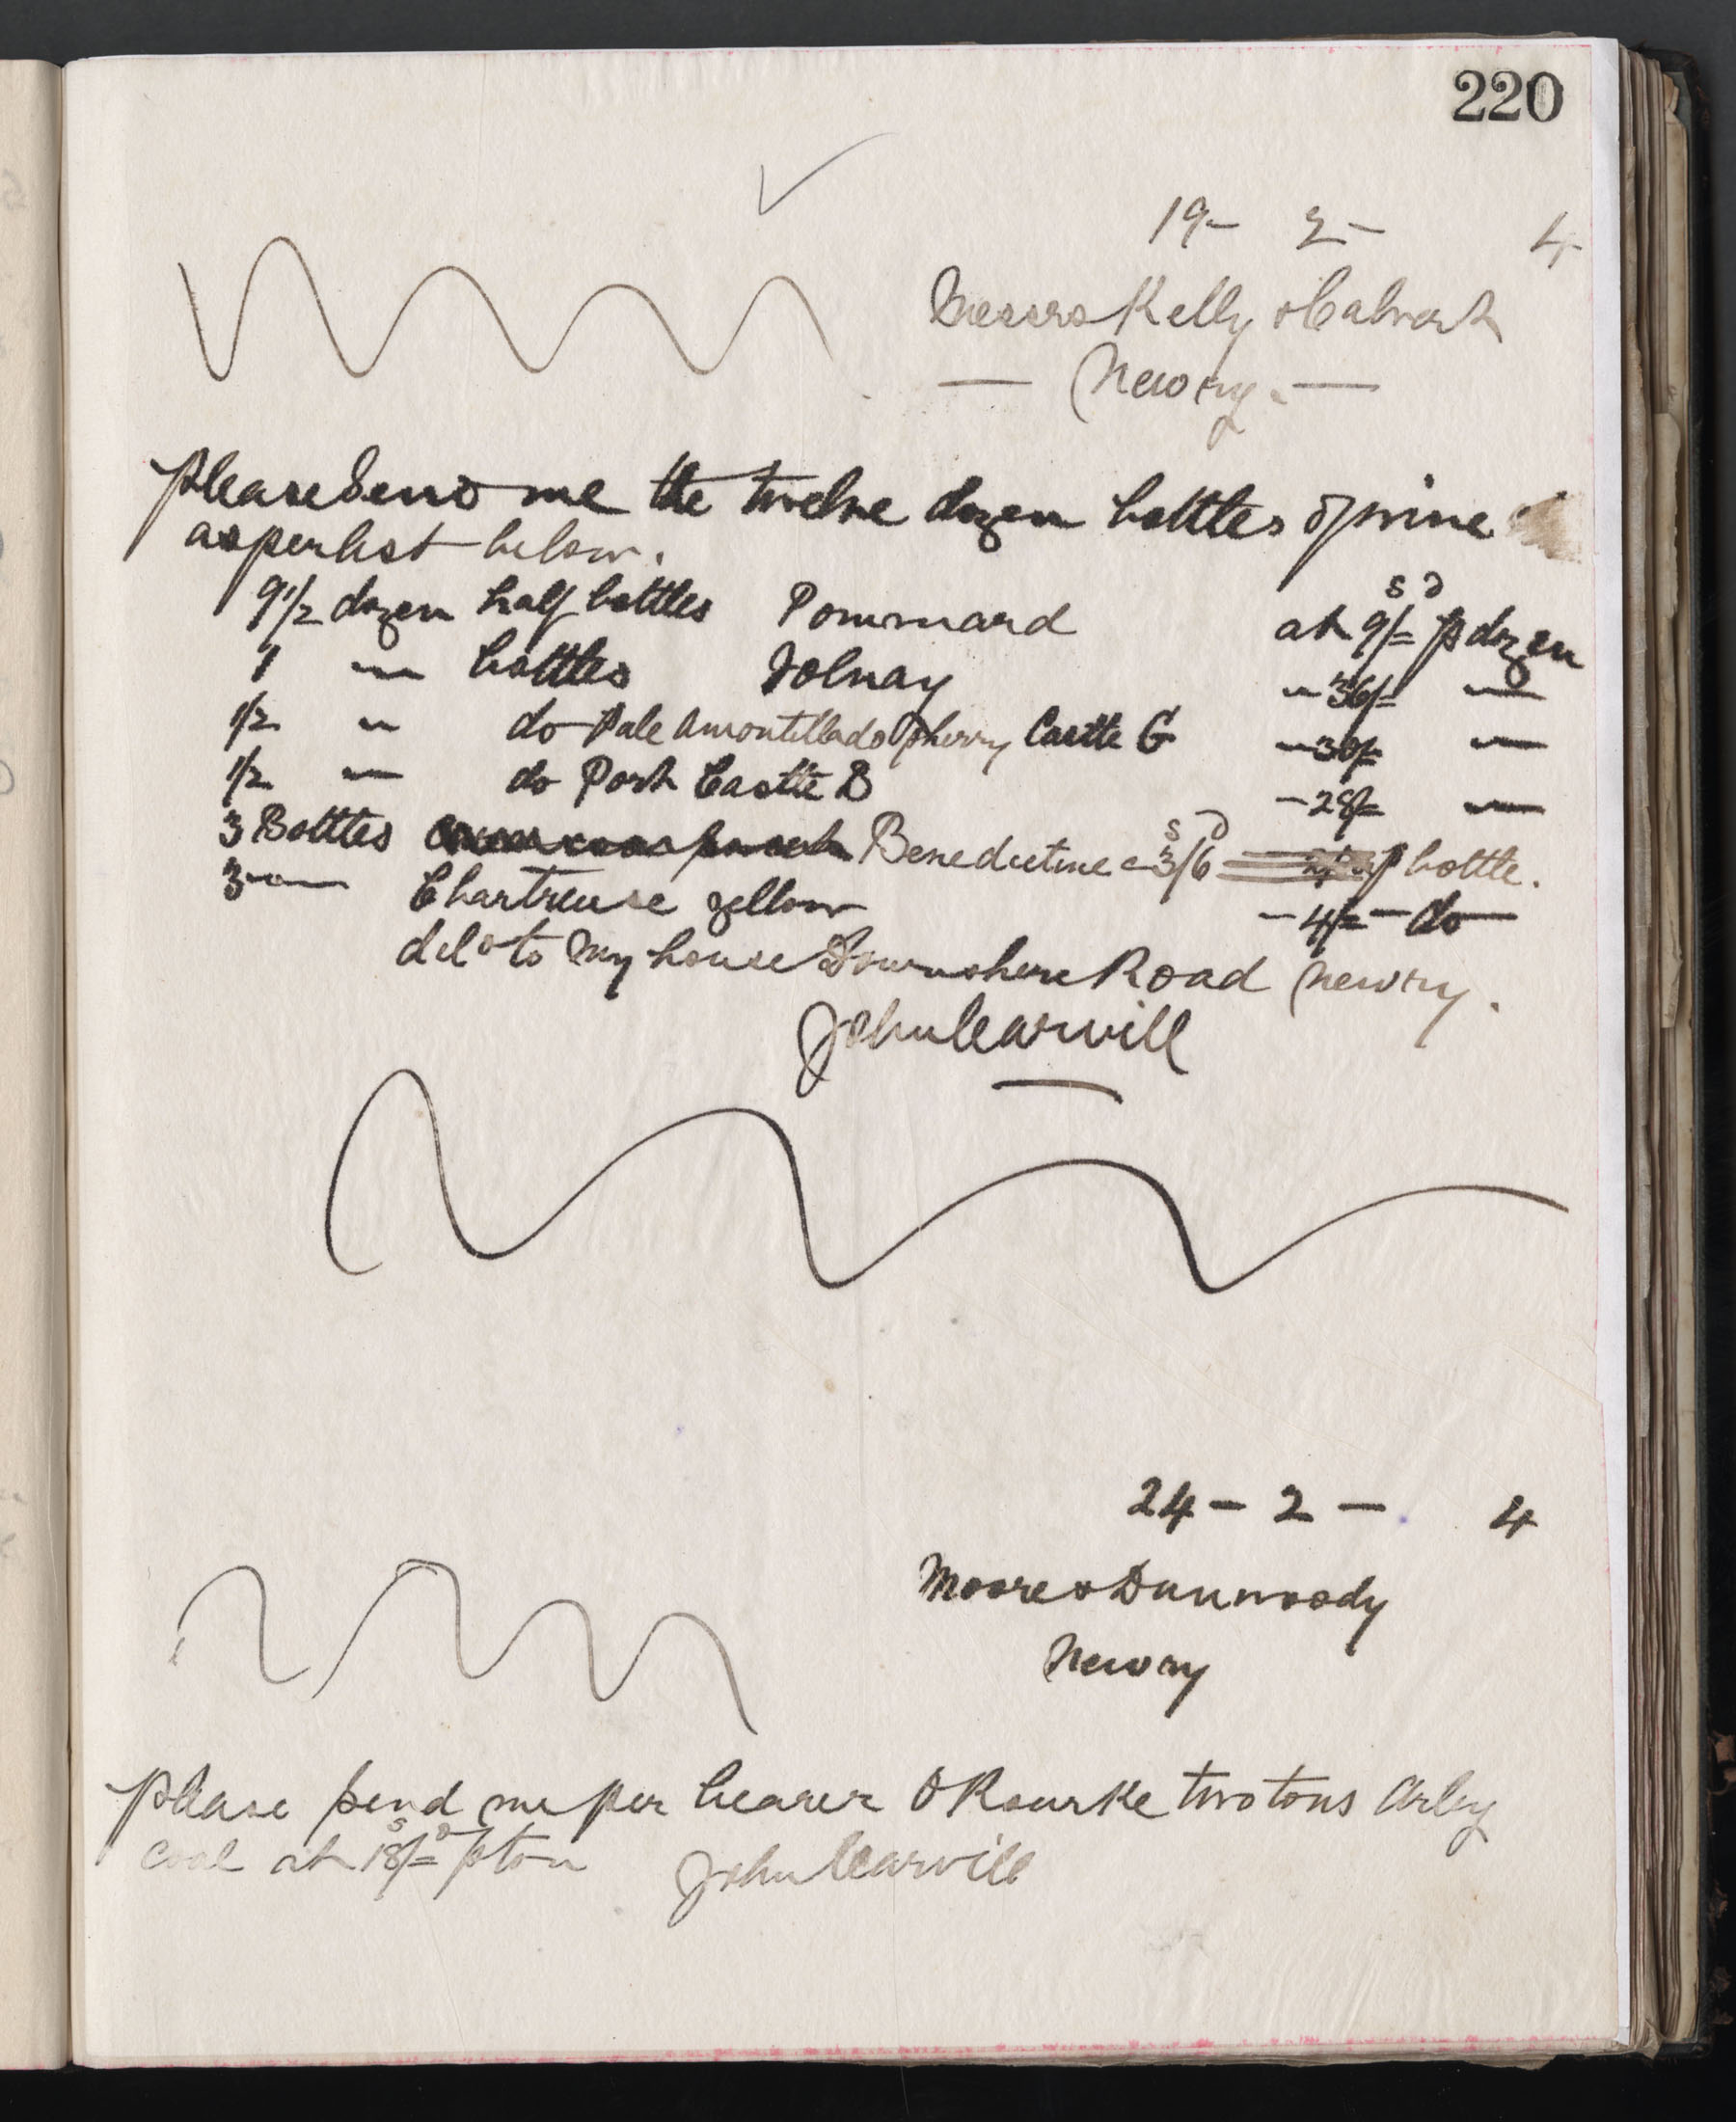 220
19- 2- 4
Messrs Kelly & Calvert
— Newry. —
Please send me the twelve dozen bottles of wine
as per list below.
9 1/2 dozen half bottles Pommard at 9/= p dozen
s d
1 — bottles Volnay — 36/= —
1/2 " do Pale Amontillado Sherry Castle G — 30/= —
1/2 — do Port Castle B — 28/= —
3 Bottles Benedictine — 3/6 p bottle.
s d
3 — Chartreuse yellow — 4/= — do —
deld to my house Downshire Road Newry.
John Carvill
24 - 2 - 4
Moore & Dunwoody
Newry
Please send me per bearer O Rourke two tons Orley
coal at 18/= p ton John Carvill
s d